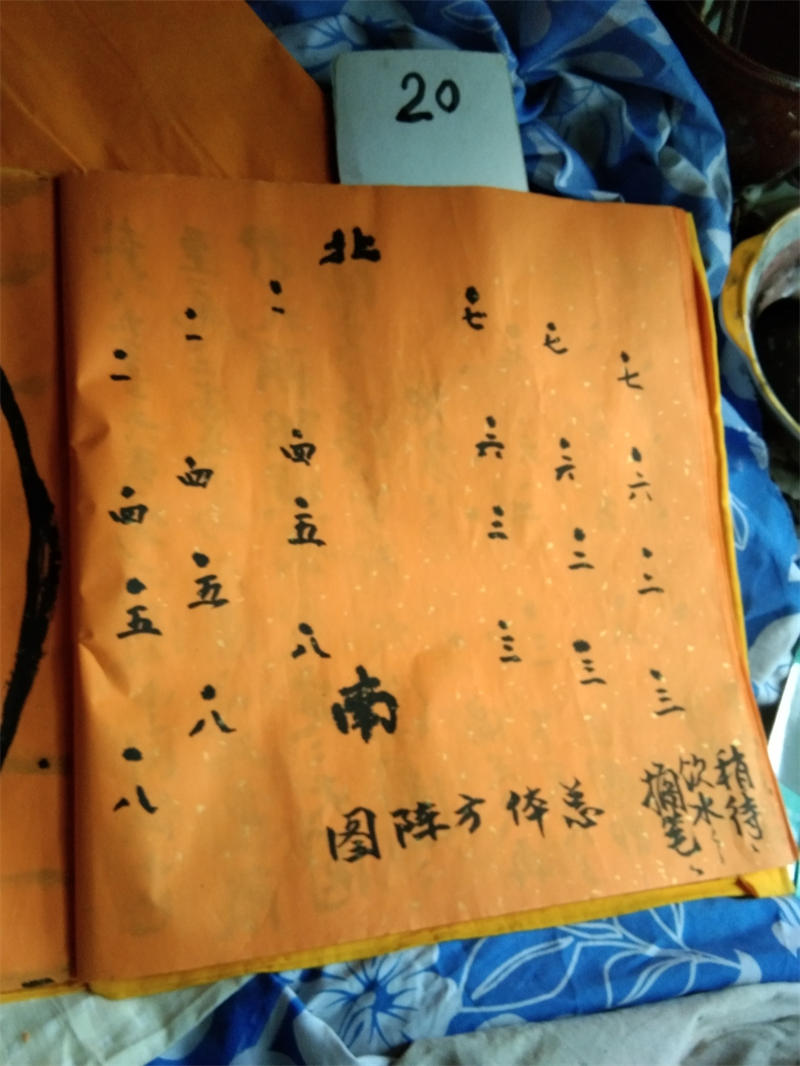 20
北
一 一 一 七 七 七
四 四 四 六 六 六
五 五 五 二 二 二
八 八 八 三 三 三
南
总体方阵图
稍待、
饮水
搁笔